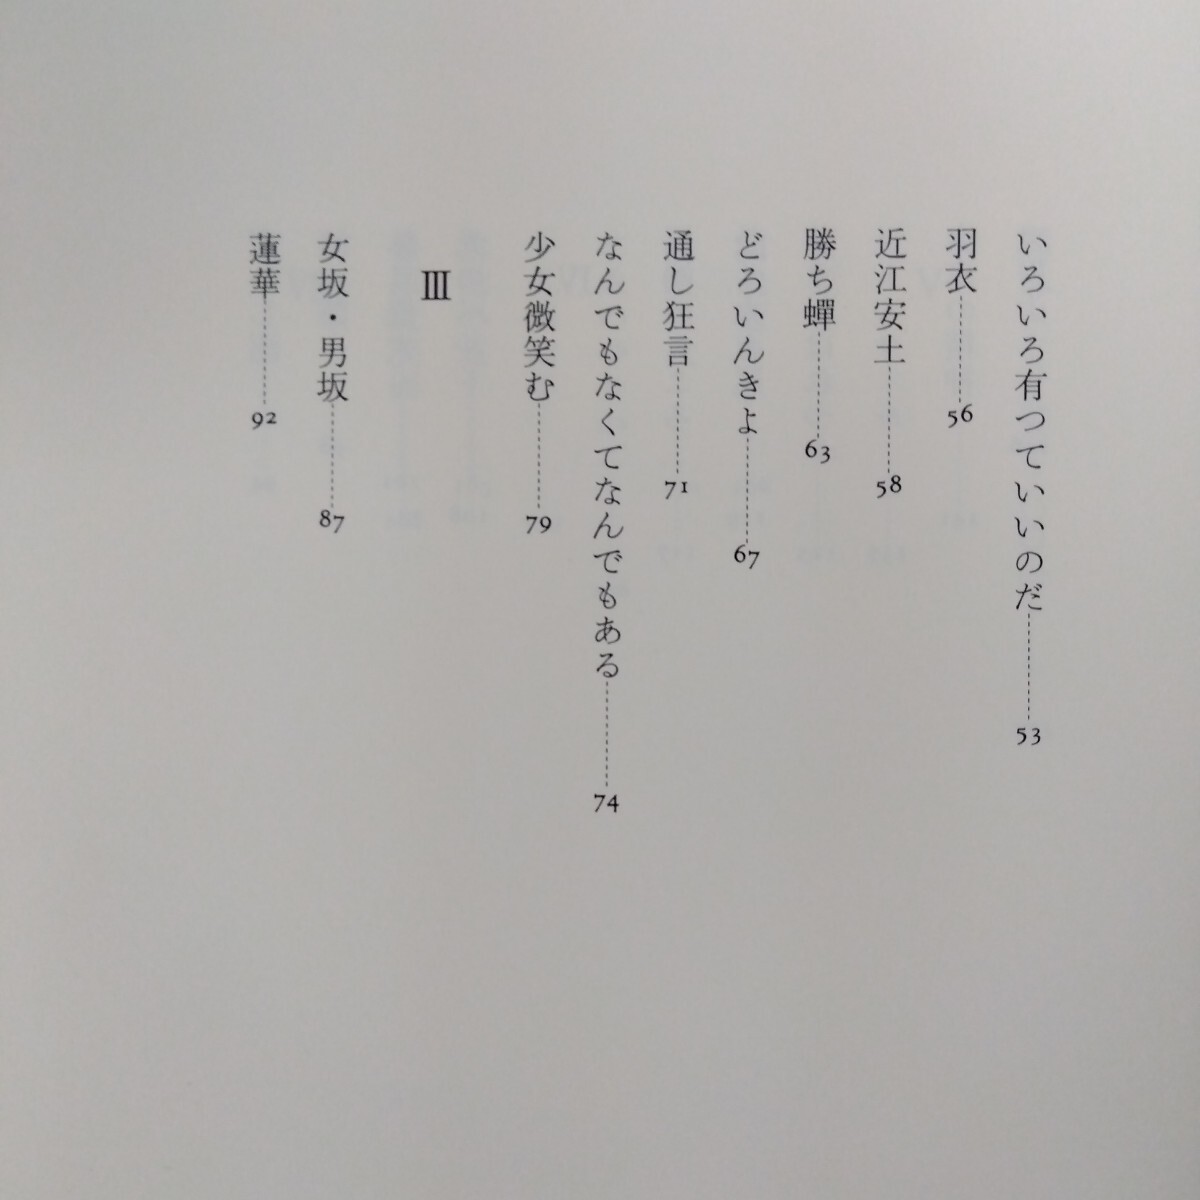 いろいろ有つていいのだ 53
羽衣 56
近江安土 58
勝ち蟬 63
どろいんきよ 67
通し狂言 71
なんでもなくてなんでもある 74
少女微笑む 79
Ⅲ
女坂・男坂 87
蓮華 92